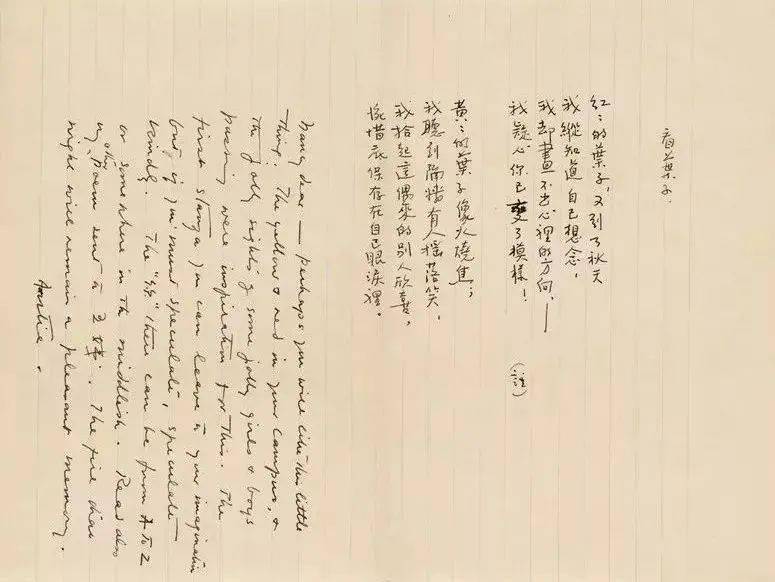 看葉子
紅〻的葉子,又到了秋天
我縱知道自己想念,
我却畫不出心裡的方向,——
我疑心你已變了模樣!(註)
黃〻的葉子像火燒焦;
我聽到隔牆有人搖落笑,
我拾起這偶來的別人欣喜,
惋惜底保存在自己眼淚裡。
dear — perhaps you will like this little
thing. The yellow & red in your campus, &
the jolly sights of some jolly girls & boys
passing were inspiration for this. The
first stanza you can leave to your imagination
but if you must speculate, speculate
kindly. The "你" there can be from A to Z
or somewhere in the middlish. Read also
my other poem sent to The fire
night will remain a pleasant memory.